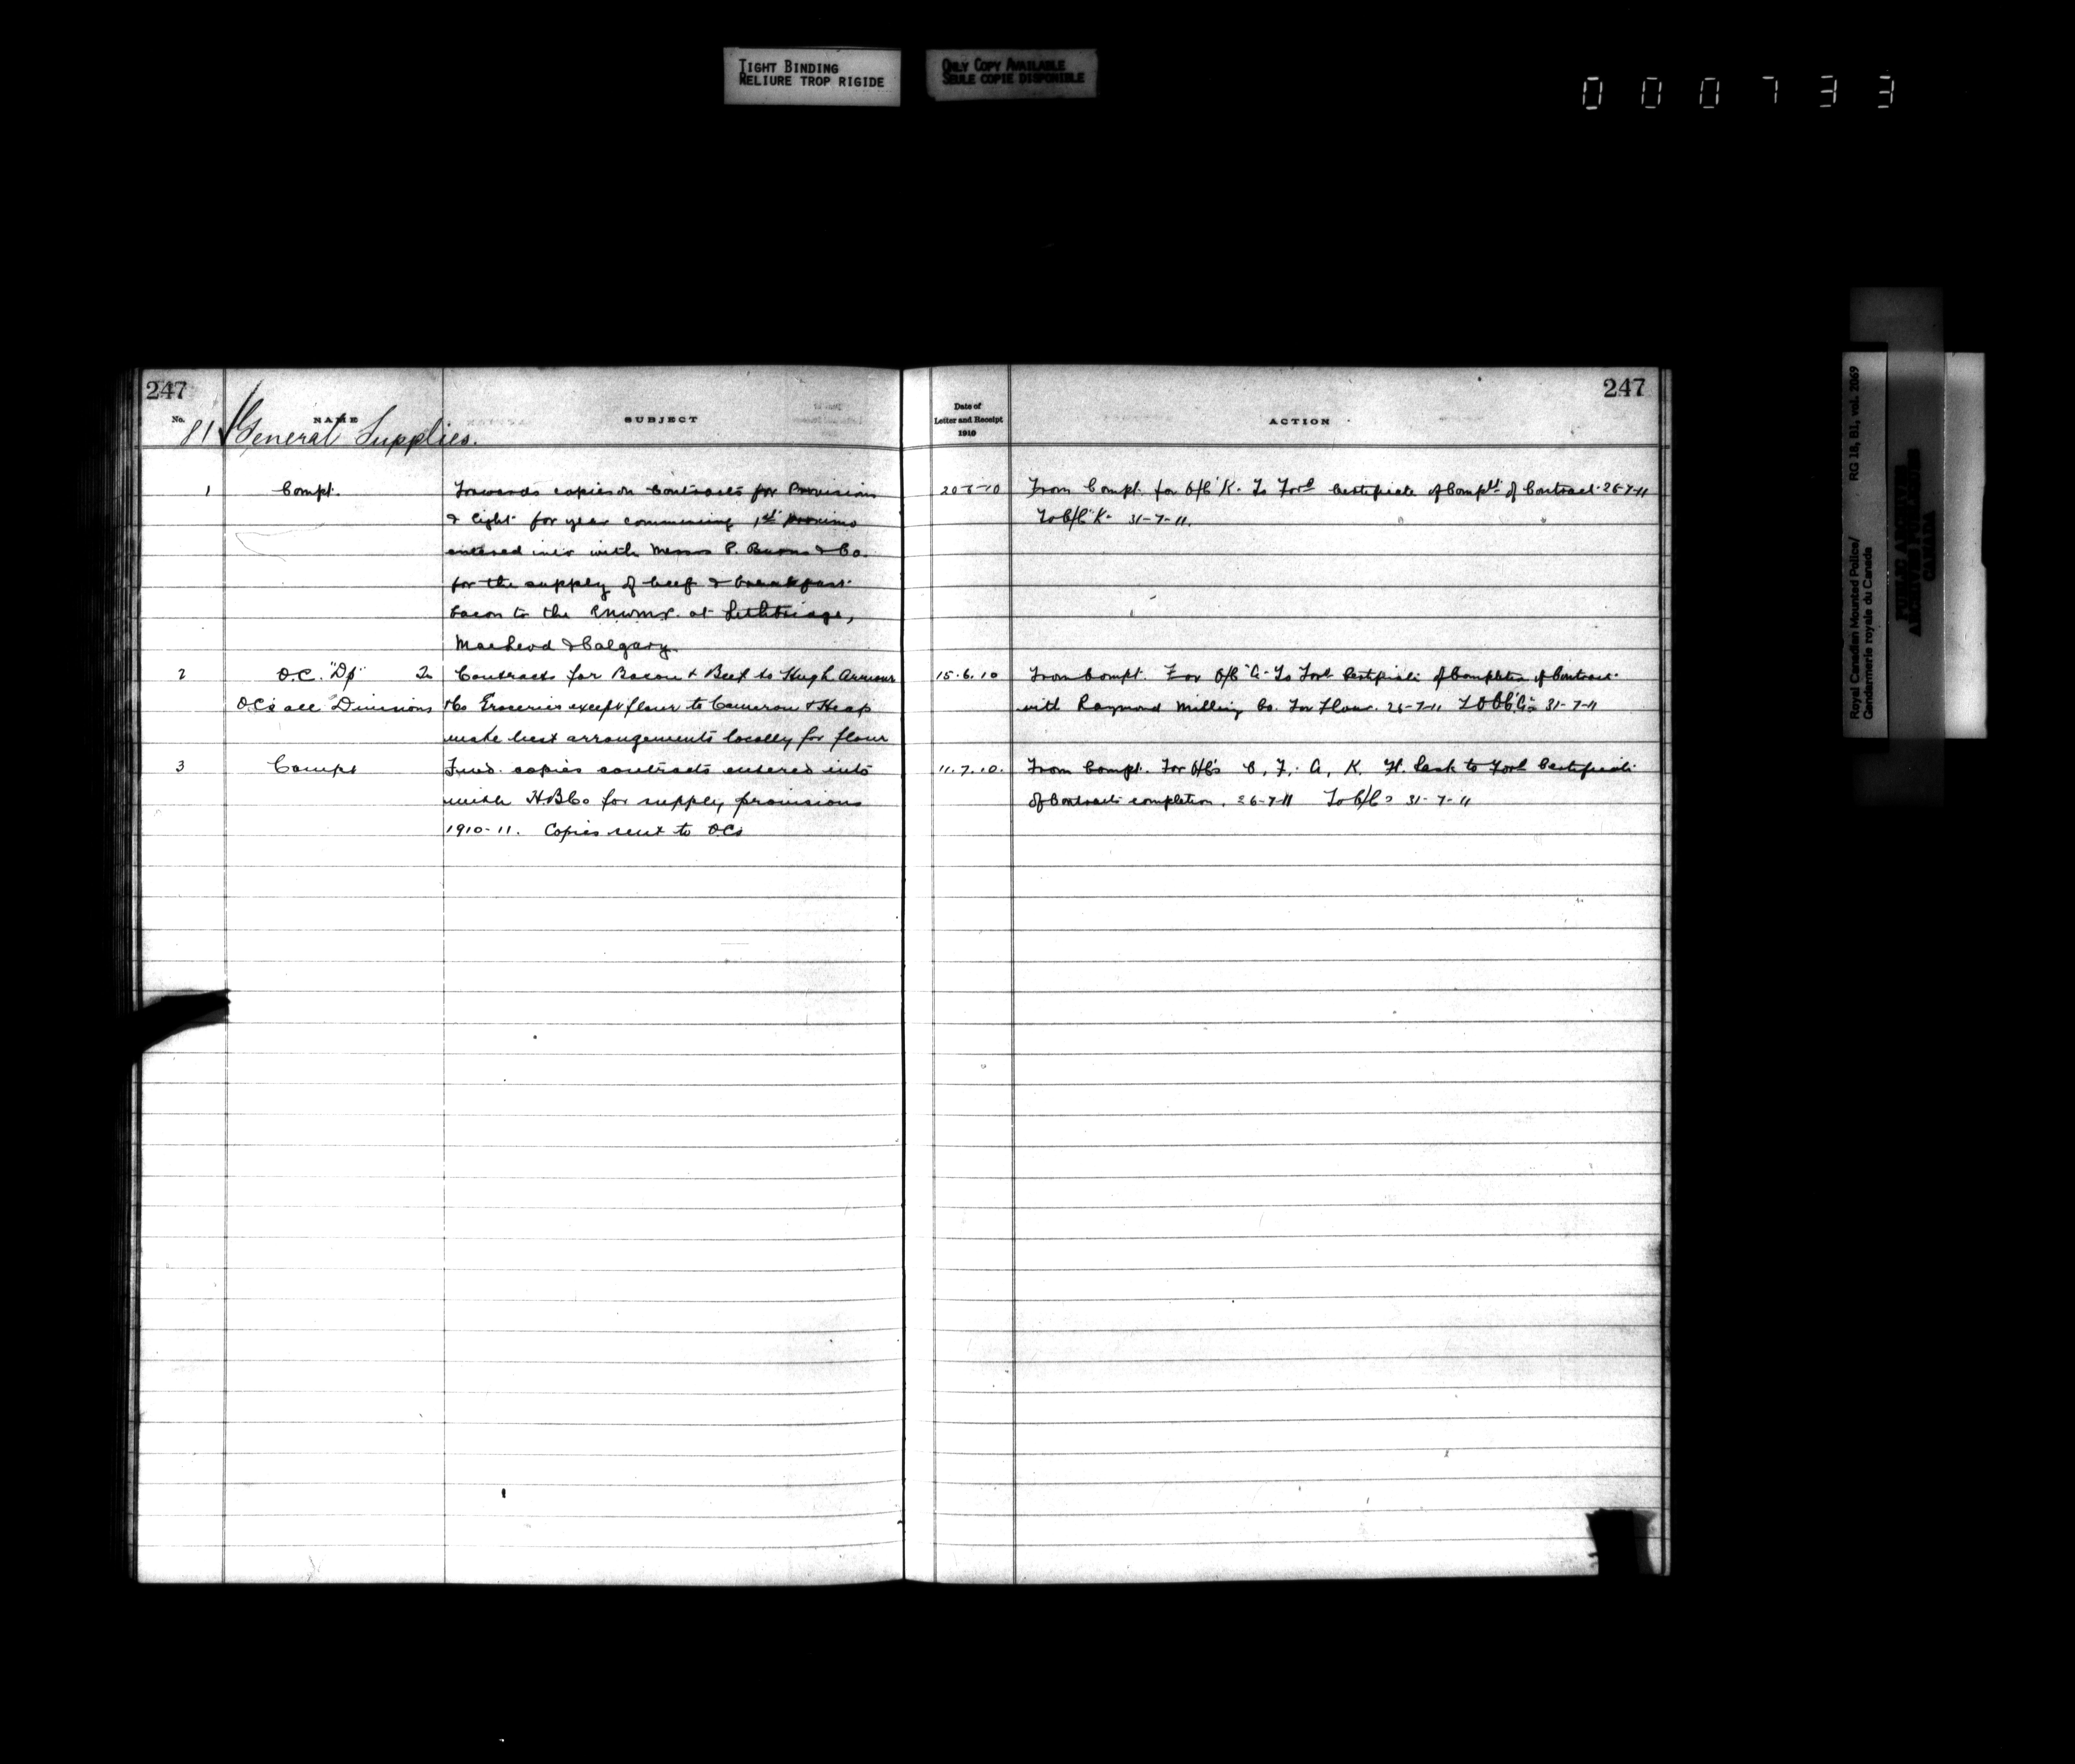 TIGHT BINDING
RELIURE TROP RIGIDE
ONLY COPY AVAILABLE
SEULE COPIE DISPONIBLE
000733
247
No. NAME SUBJECT
81 General Supplies.
1 Compt. Forwards copies on Contracts for Provisions
& light for year commencing 1st proximo
entered into with Messrs P. Burns & Co.
for the supply of beef & breakfast
bacon to the RNWMP. at Lethbridge,
Macleod & Calgary.
2 O.C. "Dp" To Contracts for Bacon & Beef to Hugh Armour
OCs all Divisions &Co Groceries except flour to Cameron & Heap
make best arrangements locally for flour
3 Compt Fwd. copies contracts entered into
with HBCo for supply provisions
1910-11. Copies sent to OCs
247
Date of
Letter and Receipt
1910
ACTION
20-6-10 From Compt. for O/C "K". To Ford Certificate of Compltn of Contract. 26-7-11
To O/C "K" 31-7-11.
15.6.10 From Compt. For O/C "A" To Ford Certificate of Completion of Contract
with Raymond Milling Co. For Flour. 26-7-11 To OC 31-7-11
11.7.10. From Compt. For O/Cs C, F, A, K. H. each to Ford Certificate
of Contracts completion. 26-7-11 To O/Cs 31-7-11
Royal Canadian Mounted Police/ RG 18, B1, vol. 2069
Gendarmerie royale du Canada
PUBLIC ARCHIVES
ARCHIVES PUBLIQUES
CANADA